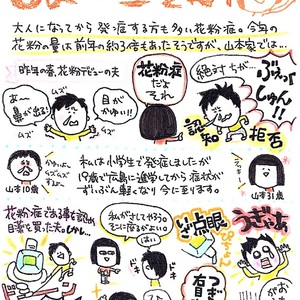 大人になってから発症する方も多い花粉症。今年の
花粉の量は前年の約3倍もあったそうですが、山本家では…
昨年の春、花粉デビューの夫
あ〜
鼻が出る!
ムズ
ムズ
目が
かゆい!!
花粉症
だよ
それ
絶対ちが…
ぶぇっ
しゅん!!
認知
拒否
山本10歳
私は小学生で発症しましたが
19歳で広島に進学してから症状が
ずいぶん軽くなり今に至ります。
山本31歳
花粉症である事を認め
目薬を買った夫。しかし…
私がさしてやろう。
そこに座りがよい。
はい
いざ点眼
ぴちょん
うぎゃあ
つぎ
右